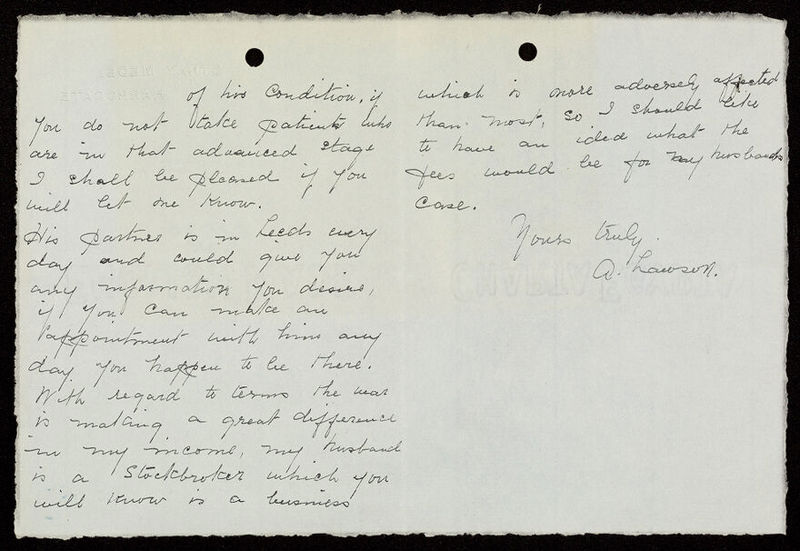 of his condition, if
you do not take patients who
are in that advanced stage
I shall be pleased if you
will let me know.
His partner is in Leeds every
day and could give you
any information you desire,
if you can make an
appointment with him any
day you happen to be there.
With regard to terms the war
is making a great difference
in my income, my husband
is a Stockbroker which you
will know is a business
which is more adversely affected
than most, so I should like
to have an idea what the
fees would be for my husbands
case.
Yours truly.
A. Lawson.